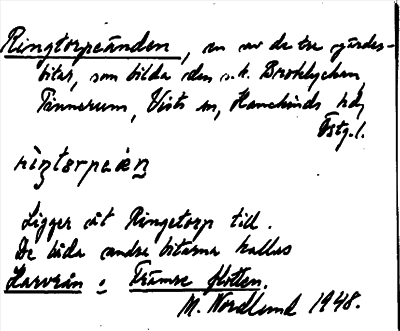 Ringtorpeänden, en av de tre gärdes-
bitar, som bilda den s.k. Brokhychan,
Tinnerum, Vists sn, Hanekinds hd,
Östg.l.
rìŋtorpeàn
Ligger åt Ringetorp till.
De båda andra bitarna kallas
Harvrån o Främre flotten.
M. Nordlund 1948.